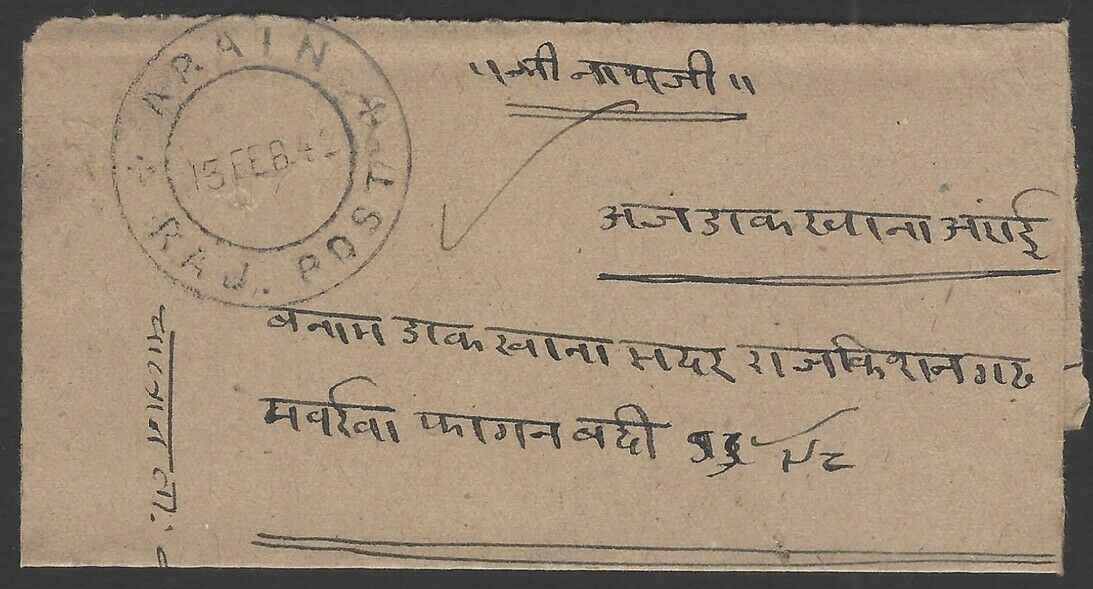 ARAIN
15 FEB. 42
RAJ. POST
॥ श्री नाथजी ॥
अज डाकखाना अंराई
बनाम डाकखाना सदर राज किशनगढ
मवर्खा फागन बदी
ता: